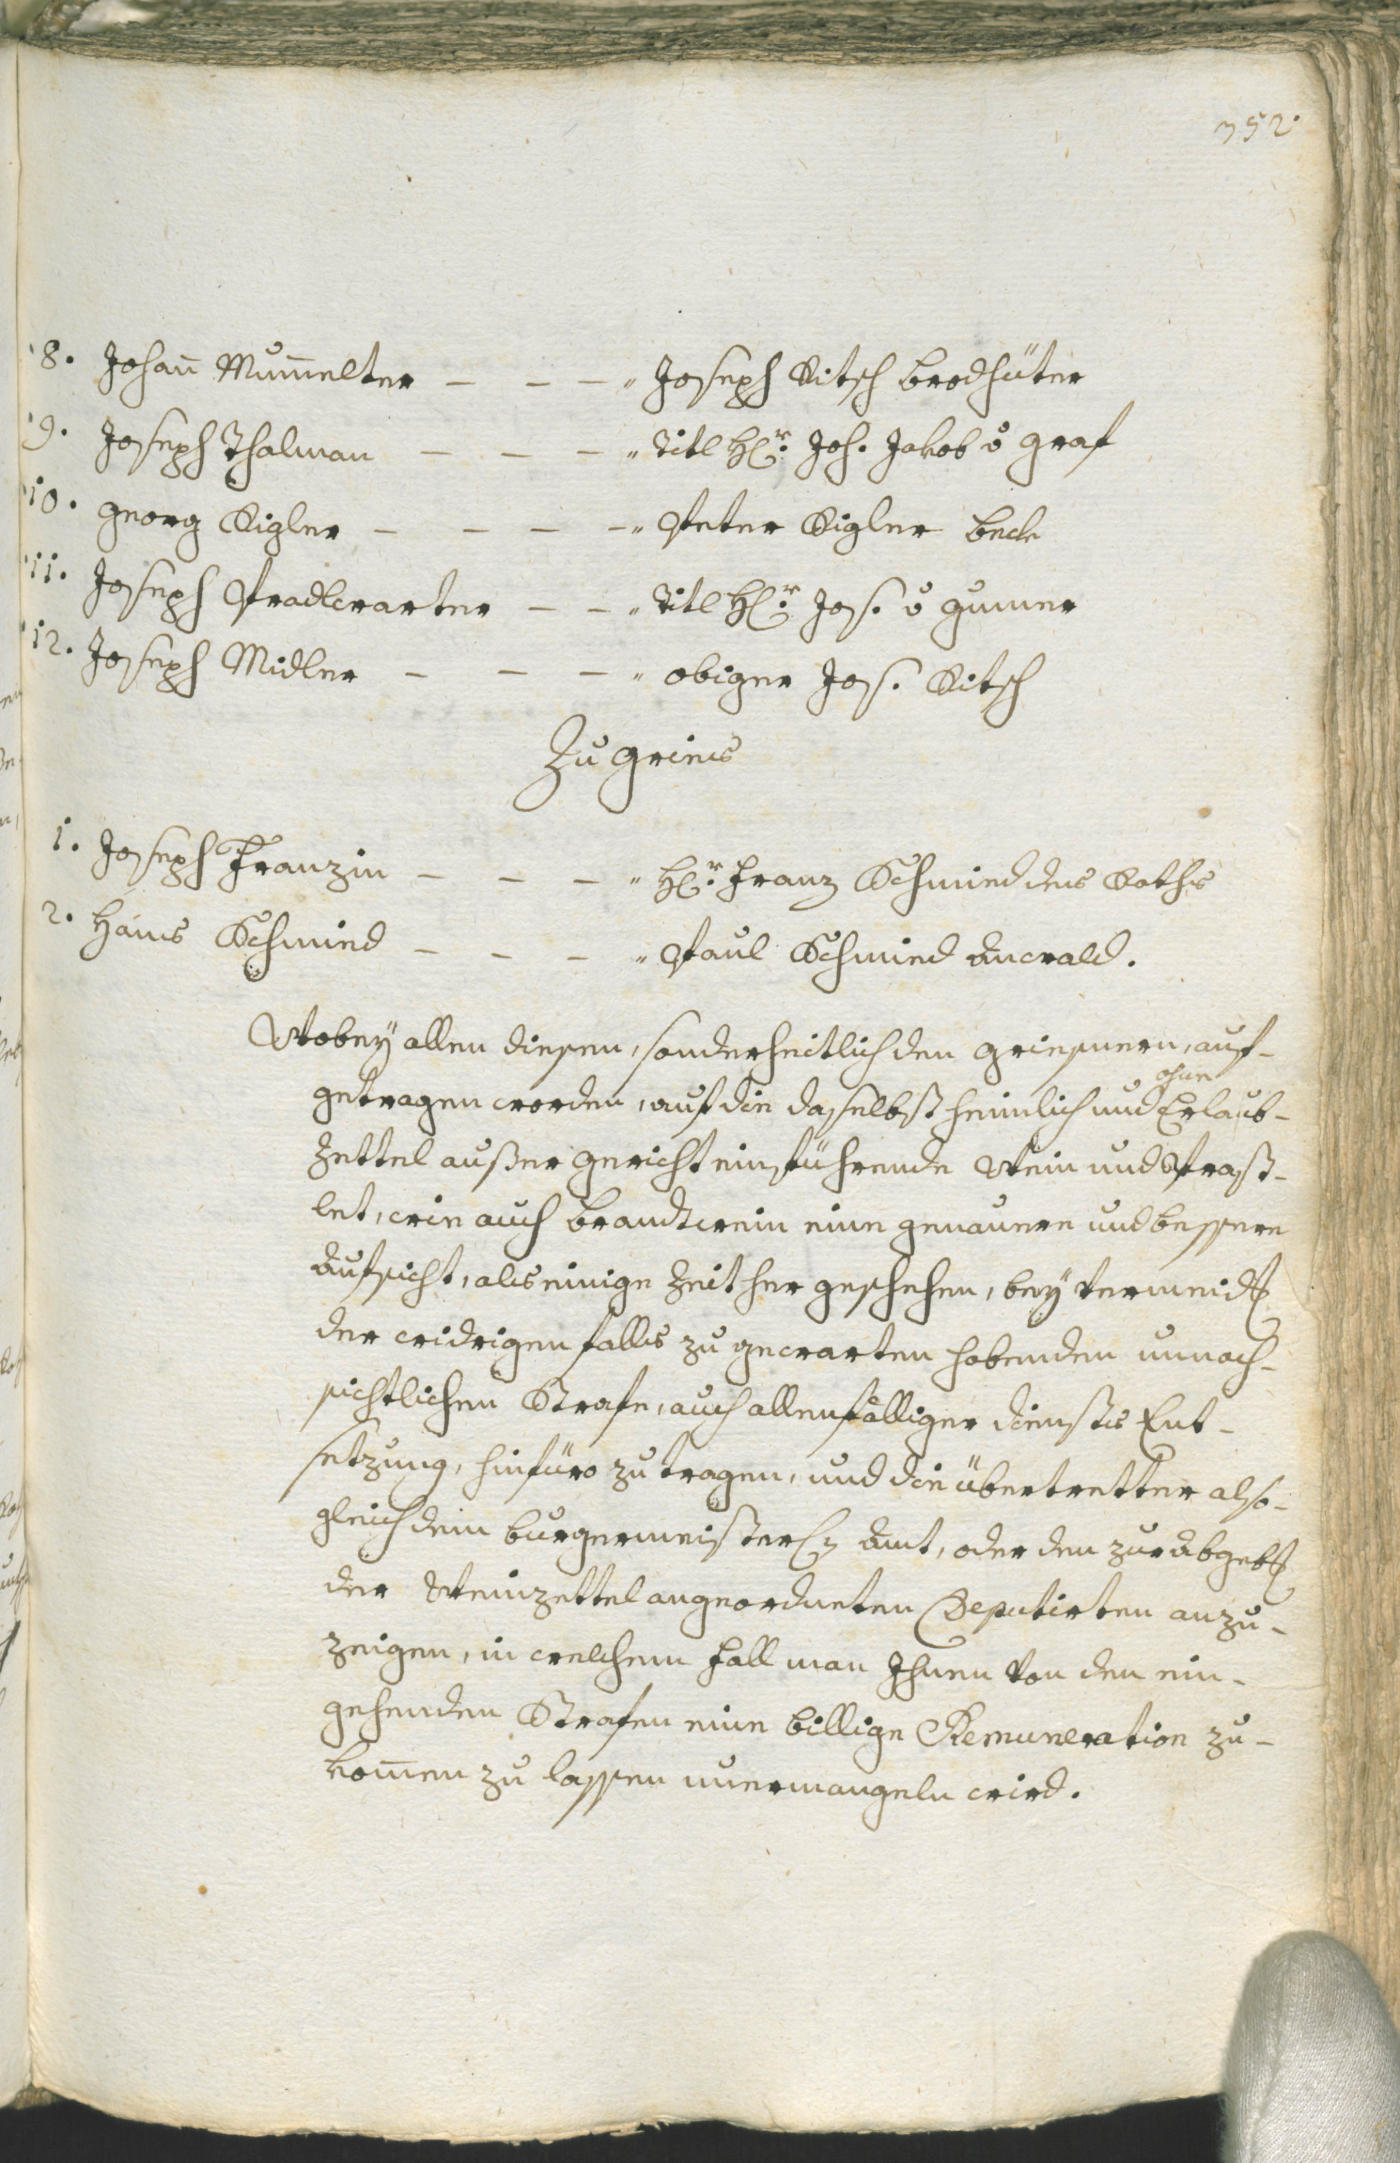 352.
8. Johan̄ Mum̄elter – – – „ Joseph Kitsch brodhüter
9. Joseph Thalman – – – „ Titl H.r Joh. Jakob v Graf
10. Georg Rigler – – – – „ Peter Rigler beck
11. Joseph Pradlwarter – – „ Titl H.r Jos. v Gumer
12. Joseph Midler – – – „ obiger Jos. Kitsch
Zu Gries
1. Joseph Franzin – – – „ H.r Franz Schmied des Raths
2. Hans Schmied – – – „ Paul Schmied Anwald.
Wobey allen diesen, sonderheitlich den Griesnern, auf-
getragen worden, auf die daselbst heimlich und ohne Erlaub-
zettel außer Gericht einführende Wein und Praß-
let, wie auch brandwein eine genauere und bessere
Aufsicht, als einige Zeit her geschehen, bey vermeidg
der widrigenfalls zu gewarten habenden unnach-
sichtlichen Strafe, auch allenfälliger diensts Ent-
setzung, hinfüro zu tragen, und die übertretter also-
gleich dem burgermeister Amt, oder den zur abgebg
der Weinzettel angeordneten Deputirten anzu-
zeigen, in welchem fall man Ihnen von den ein-
gehenden Strafen eine billige Remuneration zu-
kom̄en zu lassen unermangeln wird.